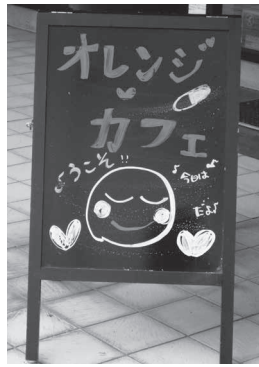 オレンジ
カフェ
ようこそ!!
今回は
だよ